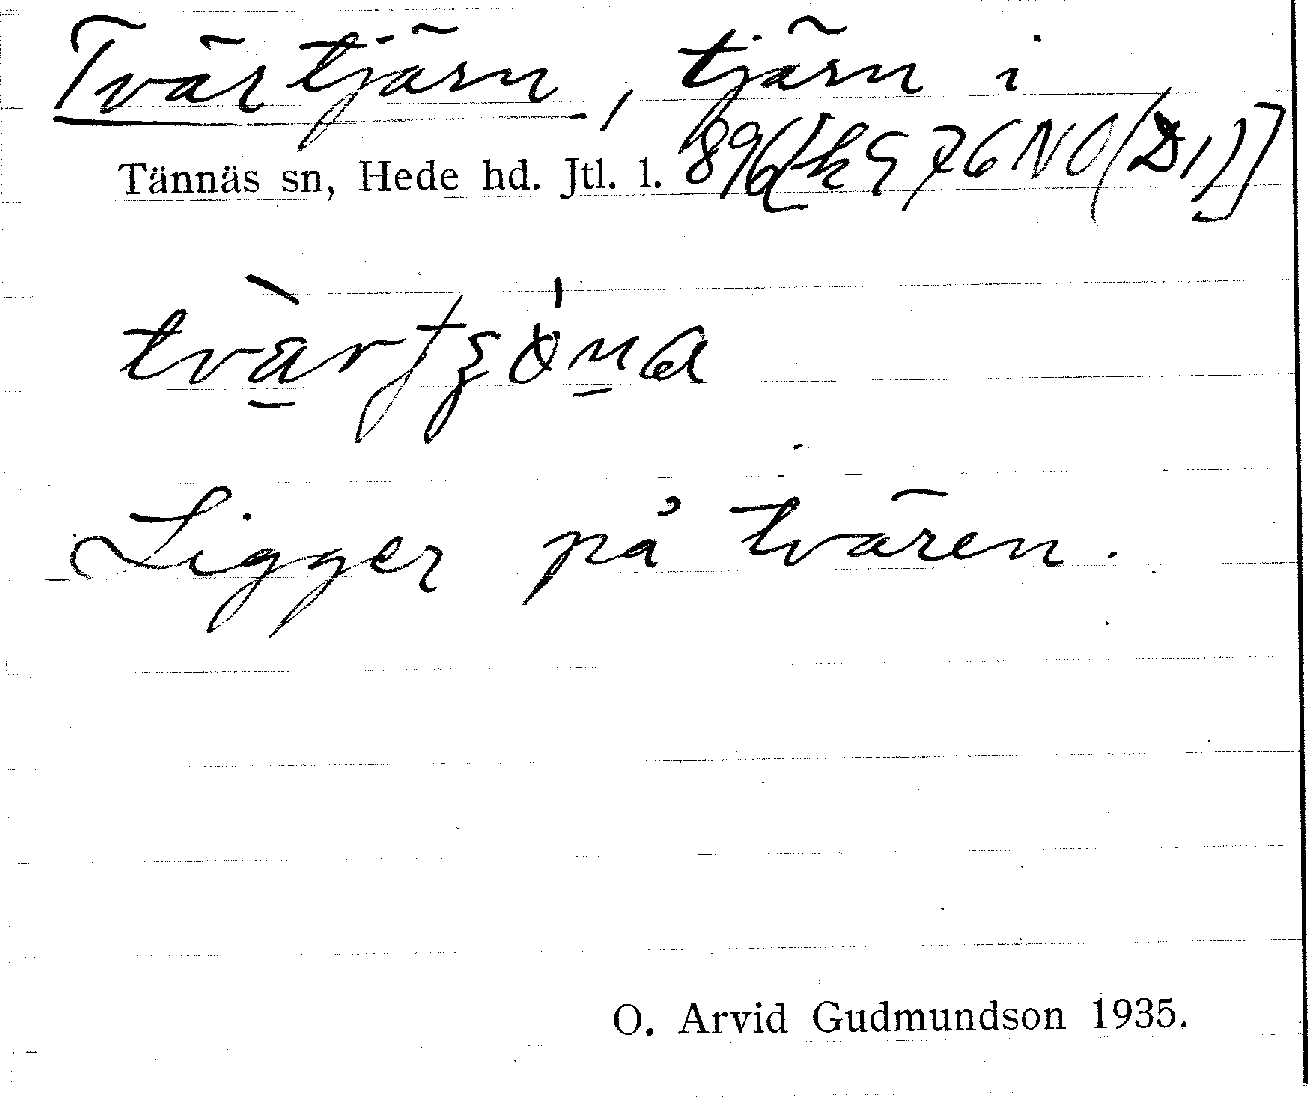 Tvärtjärn, tjärn i
Tännäs sn, Hede hd. Jtl. l. 896
Ligger på tvären.
O. Arvid Gudmundson 1935.